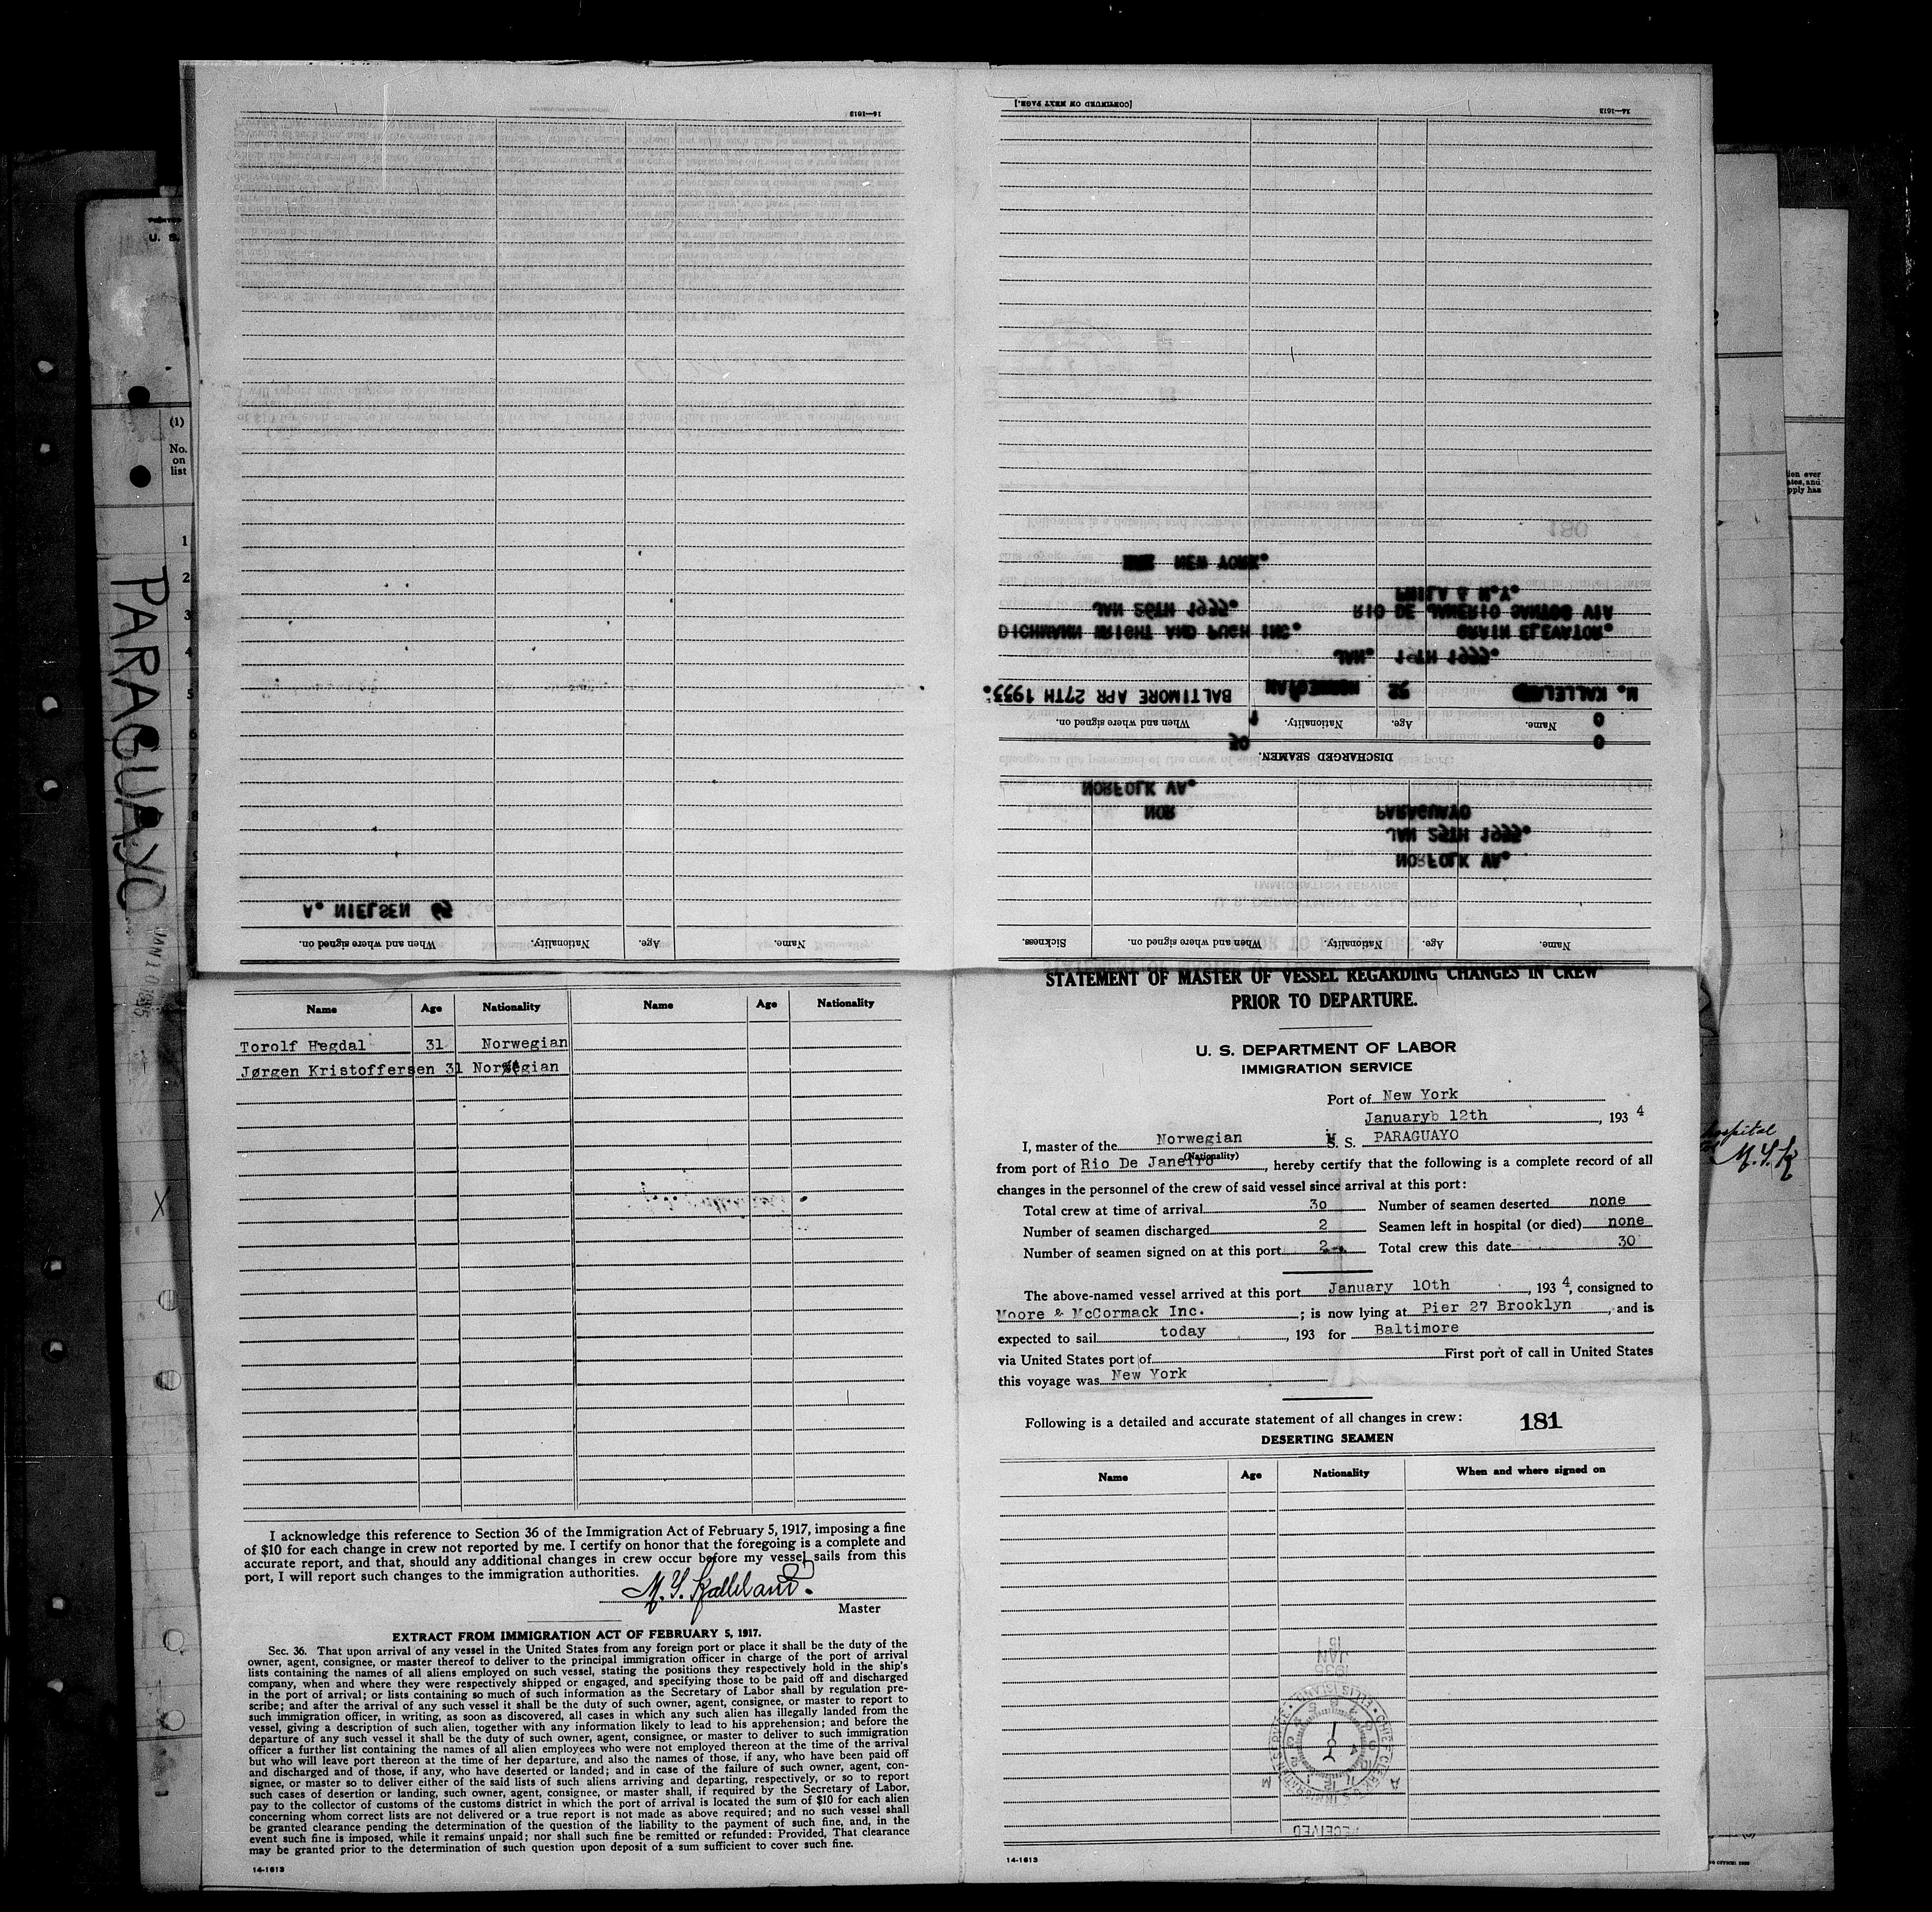 PARAGUAYO
U. S.
(1)
No.
on
list
1
2
3
4
5
6
7
8
14—1613
A. NIELSEN 65
Name.
Age.
Nationality.
When and where signed on.
[CONTINUED ON NEXT PAGE.]
14—1613
NEW YORK.
PHILA & N.Y.
JAN 26TH 1935.
RIO DE JANERIO SANTOS VIA
DICHMANN WRIGHT AND PUGH INC.
GRAIN ELEVATOR.
JAN. 19TH 1935.
BALTIMORE APR 27TH 1933.
NORWEGIAN
52
M. KALLELAND
0
Name.
Age.
Nationality.
When and where signed on.
1
30
0
DISCHARGED SEAMEN.
NORFOLK VA.
NOR
PARAGUAYO
JAN 25TH 1935.
NORFOLK VA.
Name.
Age.
Nationality.
When and where signed on.
Sickness.
Name Age Nationality Name Age Nationality
Torolf Hegdal 31 Norwegian
Jørgen Kristoffersen 31 Norwegian
I acknowledge this reference to Section 36 of the Immigration Act of February 5, 1917, imposing a fine
of $10 for each change in crew not reported by me. I certify on honor that the foregoing is a complete and
accurate report, and that, should any additional changes in crew occur before my vessel sails from this
port, I will report such changes to the immigration authorities.
M. Y. Kalleland.
Master
EXTRACT FROM IMMIGRATION ACT OF FEBRUARY 5, 1917.
Sec. 36. That upon arrival of any vessel in the United States from any foreign port or place it shall be the duty of the
owner, agent, consignee, or master thereof to deliver to the principal immigration officer in charge of the port of arrival
lists containing the names of all aliens employed on such vessel, stating the positions they respectively hold in the ship's
company, when and where they were respectively shipped or engaged, and specifying those to be paid off and discharged
in the port of arrival; or lists containing so much of such information as the Secretary of Labor shall by regulation pre-
scribe; and after the arrival of any such vessel it shall be the duty of such owner, agent, consignee, or master to report to
such immigration officer, in writing, as soon as discovered, all cases in which any such alien has illegally landed from the
vessel, giving a description of such alien, together with any information likely to lead to his apprehension; and before the
departure of any such vessel it shall be the duty of such owner, agent, consignee, or master to deliver to such immigration
officer a further list containing the names of all alien employees who were not employed thereon at the time of the arrival
but who will leave port thereon at the time of her departure, and also the names of those, if any, who have been paid off
and discharged and of those, if any, who have deserted or landed; and in case of the failure of such owner, agent, con-
signee, or master so to deliver either of the said lists of such aliens arriving and departing, respectively, or so to report
such cases of desertion or landing, such owner, agent, consignee, or master shall, if required by the Secretary of Labor,
pay to the collector of customs of the customs district in which the port of arrival is located the sum of $10 for each alien
concerning whom correct lists are not delivered or a true report is not made as above required; and no such vessel shall
be granted clearance pending the determination of the question of the liability to the payment of such fine, and, in the
event such fine is imposed, while it remains unpaid; nor shall such fine be remitted or refunded: Provided, That clearance
may be granted prior to the determination of such question upon deposit of a sum sufficient to cover such fine.
14-1613
STATEMENT OF MASTER OF VESSEL REGARDING CHANGES IN CREW
PRIOR TO DEPARTURE.
U. S. DEPARTMENT OF LABOR
IMMIGRATION SERVICE
Port of New York
Januaryb 12th, 1934
I, master of the Norwegian M S. S. PARAGUAYO
(Nationality)
from port of Rio De Janeiro, hereby certify that the following is a complete record of all
changes in the personnel of the crew of said vessel since arrival at this port:
Total crew at time of arrival 30 Number of seamen deserted none
Number of seamen discharged 2 Seamen left in hospital (or died) none
Number of seamen signed on at this port 2 Total crew this date 30
The above-named vessel arrived at this port January 10th, 1934, consigned to
Moore & McCormack Inc.; is now lying at Pier 27 Brooklyn, and is
expected to sail today, 193 for Baltimore
via United States port of First port of call in United States
this voyage was New York
Following is a detailed and accurate statement of all changes in crew: 181
DESERTING SEAMEN
Name Age Nationality When and where signed on
1935
JAN
CHIEF CLERK'S
IMMIGRATION SERVICE
ELLIS ISLAND
RECEIVED
14-1613
hospital
M. Y. K